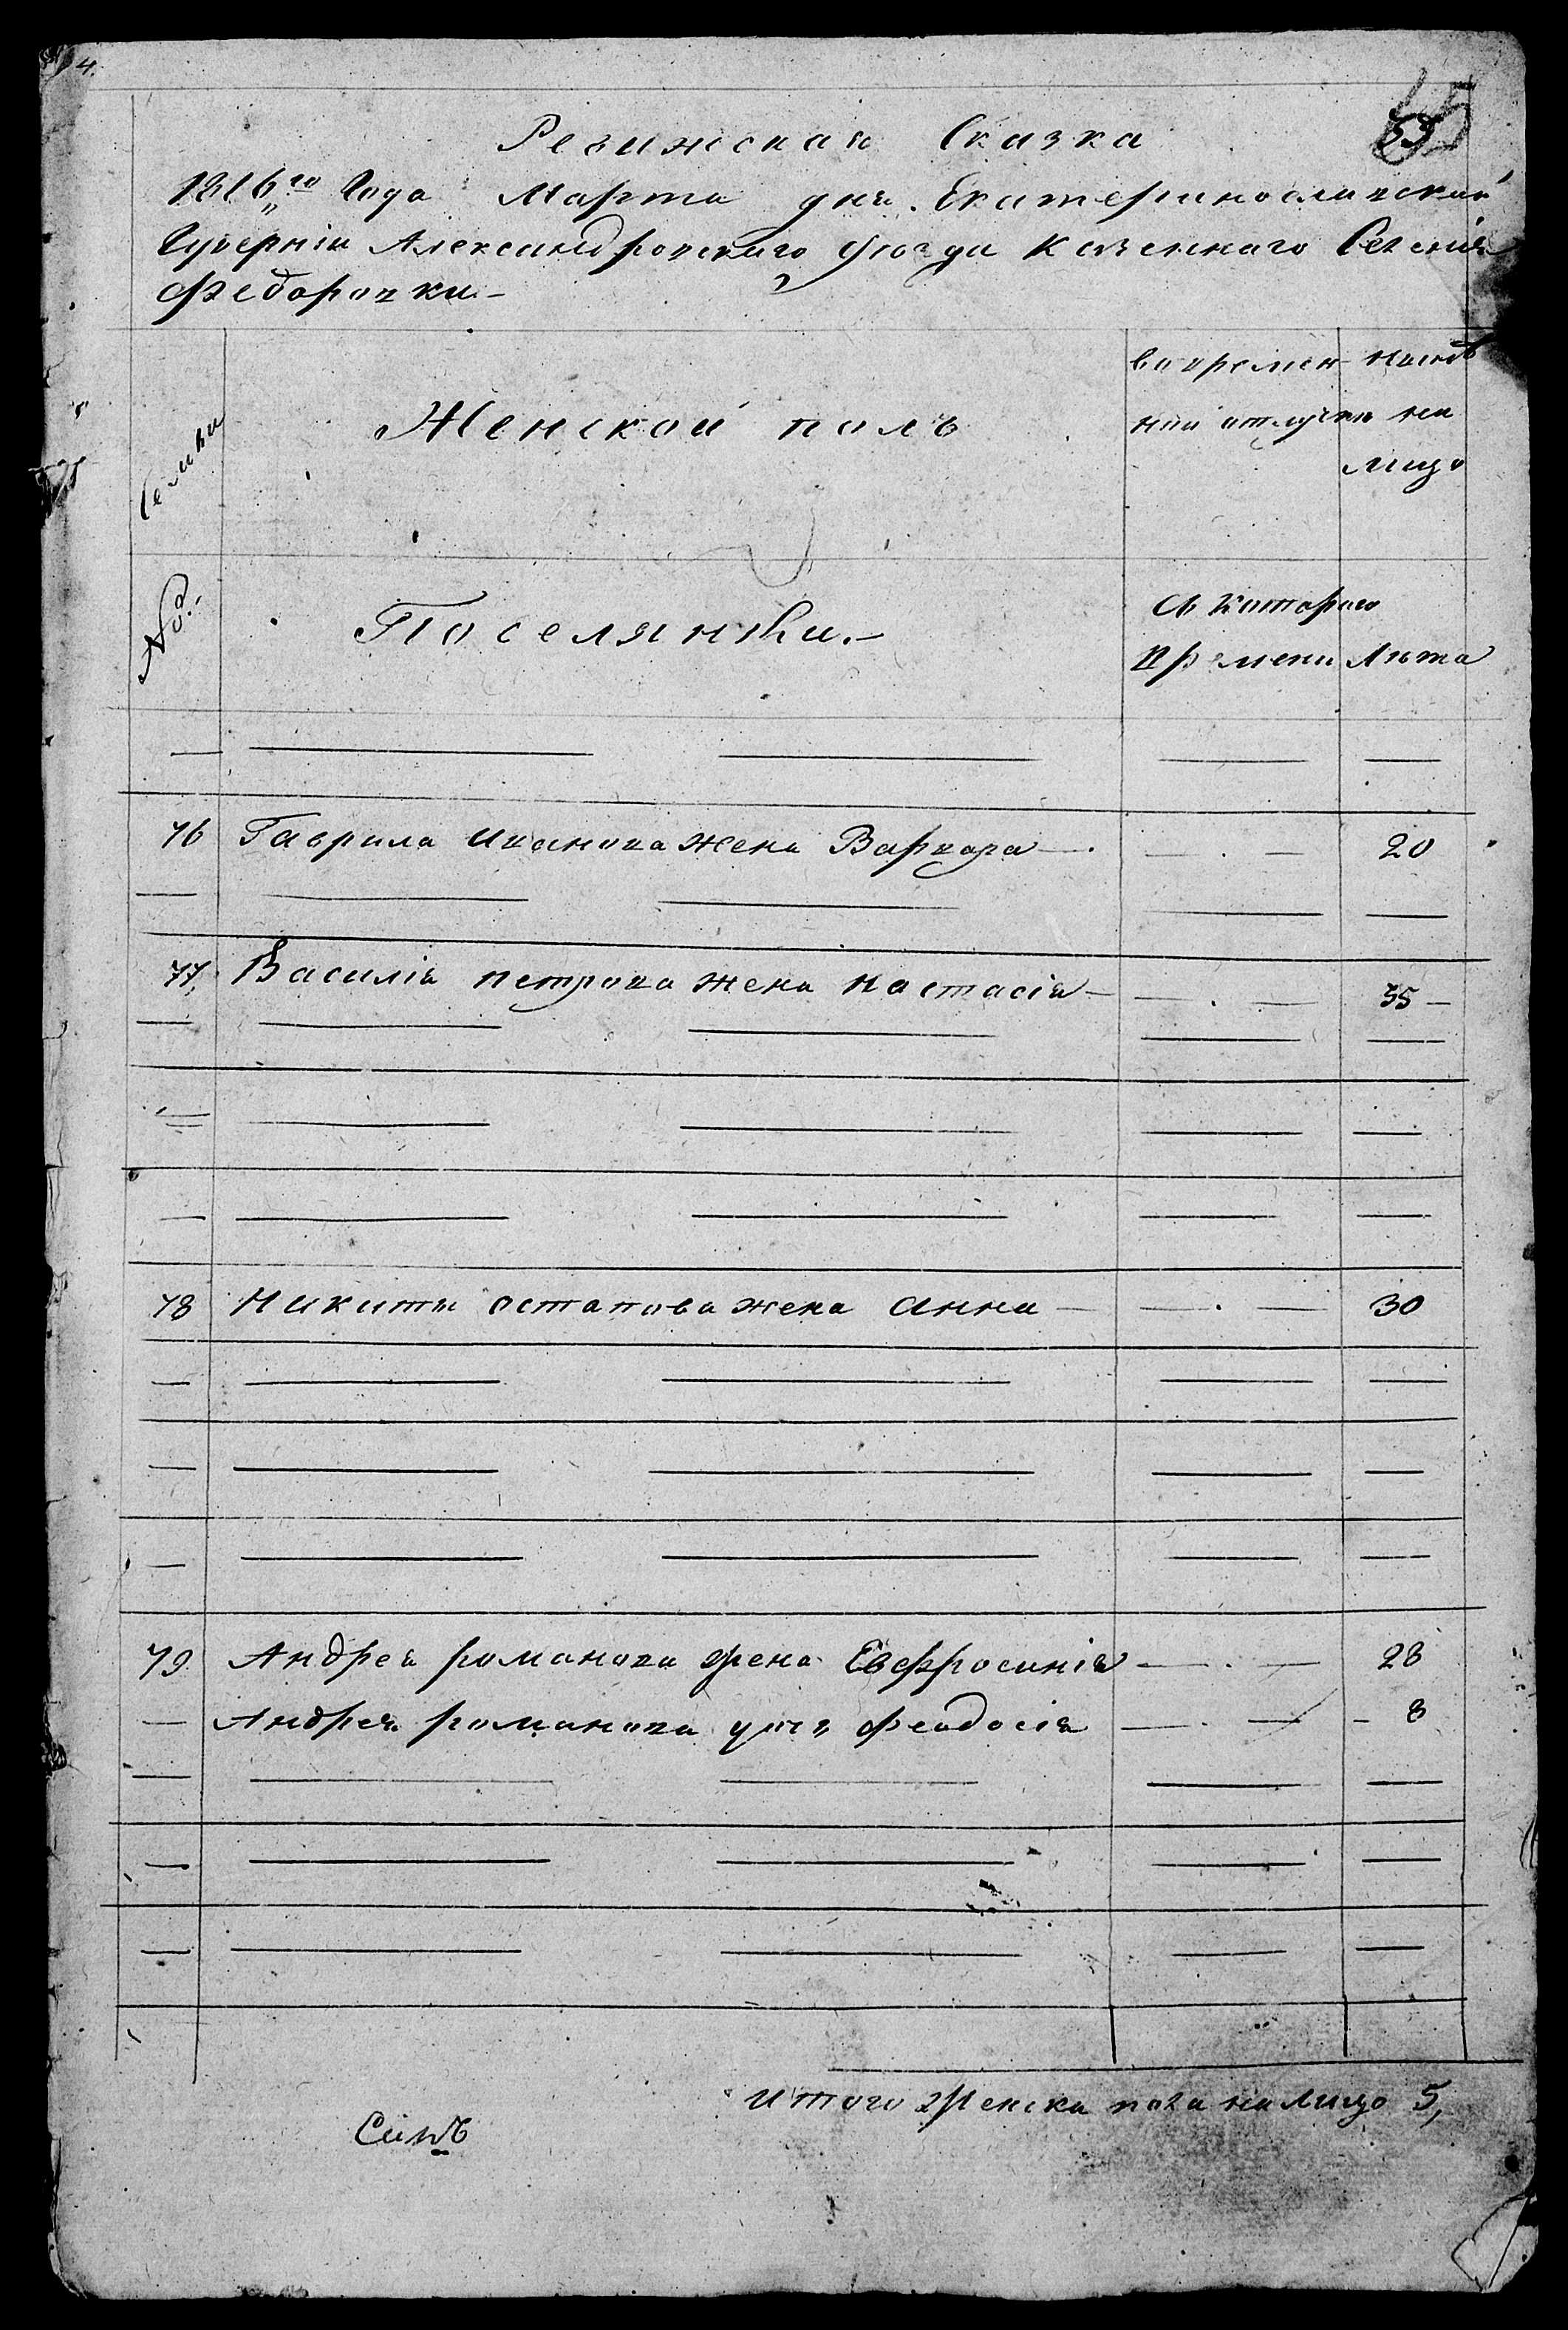 4.
Ревижская Сказка
1816го Года Марта дня. Екатеринославской
Губерніи Александровскаго уѣзда Казеннаго Селенія
Федоровки
Семьи
Женской полъ
во времен-
ной отлучки
налицо
№
Поселянки.
Съ Котораго
времени
Лѣта
76 Гаврила Иванова жена Варвара — . — 20
77, Василія петрова жена Настасія — . — 35
78 Никиты остапова жена Анна — . — 30
79. Андрея романова жена Евфросинія — . — 28
Андрея романова дочь феодосія — . — 8
Итого женска пола налицо 5,